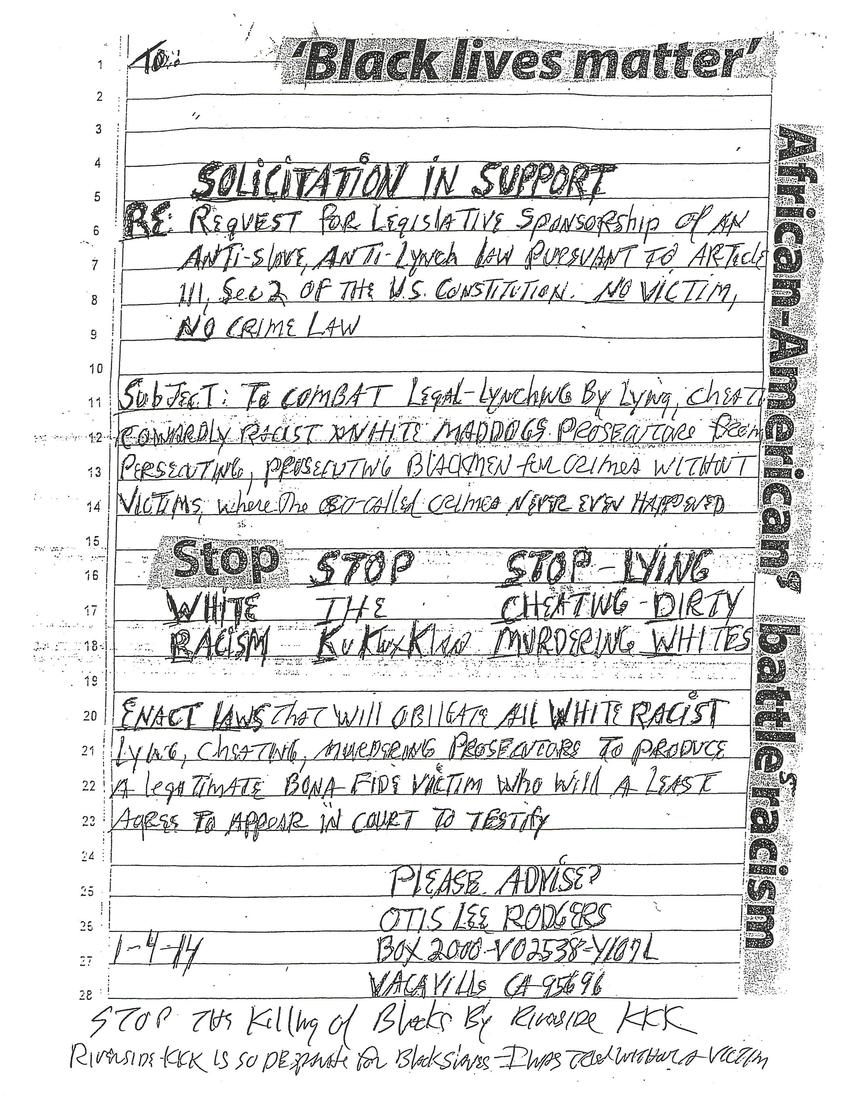 To:
'Black lives matter'
African-American, battle racism
1
2
3
4
SOLICITATION IN SUPPORT
5
RE: REQUEST FOR LEGISLATIVE SPONSORSHIP OF AN
6
ANTI-SLAVE, ANTI-LYNCH LAW PURSUANT TO ARTICLE
7
III, SEC 2 OF THE U.S. CONSTITUTION. NO VICTIM,
8
NO CRIME LAW
9
10
SUBJECT: TO COMBAT LEGAL-LYNCHING BY LYING, CHEAT
11
COWARDLY RACIST WHITE MADDOGS PROSECUTORS FROM
12
PERSECUTING, PROSECUTING BLACKMEN FOR CRIMES WITHOUT
13
VICTIMS, where The SO-CALLED CRIMES NEVER EVEN HAPPENED
14
15
Stop STOP STOP-LYING
16
WHITE THE CHEATING-DIRTY
17
RACISM KuKluxKlan MURDERING WHITES
18
19
ENACT LAWS THAT WILL OBLIGATE ALL WHITE RACIST
20
LYING, CHEATING, MURDERING PROSECUTORS TO PRODUCE
21
A legATIMATE BONA-FIDE VICTIM WHO WILL A LEAST
22
AGREE TO APPEAR IN COURT TO TESTIFY
23
24
PLEASE ADVISE?
25
OTIS LEE RODGERS
26
1-4-14 BOX 2000-V02538-Y107L
27
VACAVILLE CA 95696
28
STOP THE Killing of Blacks By Riverside KKK
RIVERSIDE KKK IS SO DESPARATE for BlackSlaves-I WAS TRIED WITHOUT A VICTIM